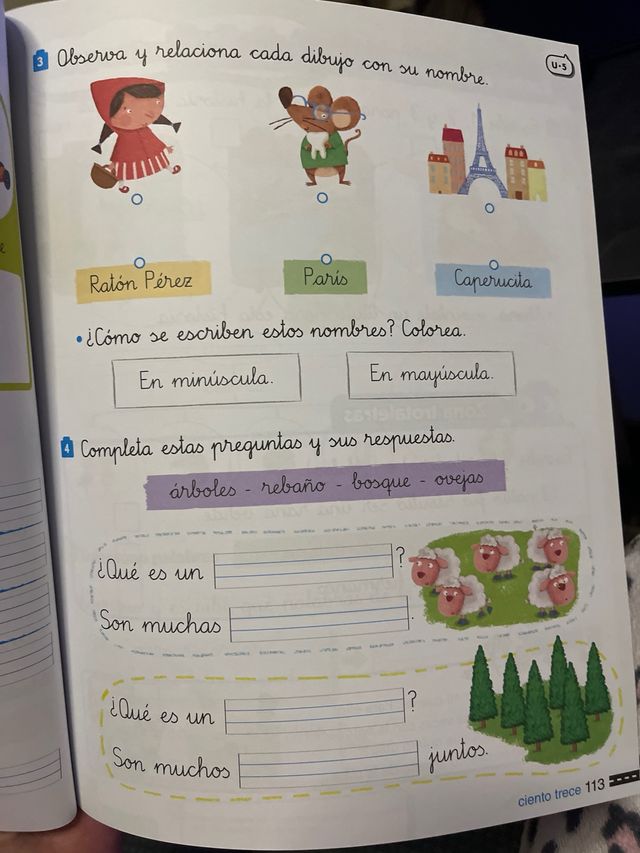 3 Observa y relaciona cada dibujo con su nombre.
U-5
Ratón Pérez
París
Caperucita
• ¿Cómo se escriben estos nombres? Colorea.
En minúscula.
En mayúscula.
4 Completa estas preguntas y sus respuestas.
árboles - rebaño - bosque - ovejas
¿Qué es un ?
Son muchas .
¿Qué es un ?
Son muchos juntos.
ciento trece 113